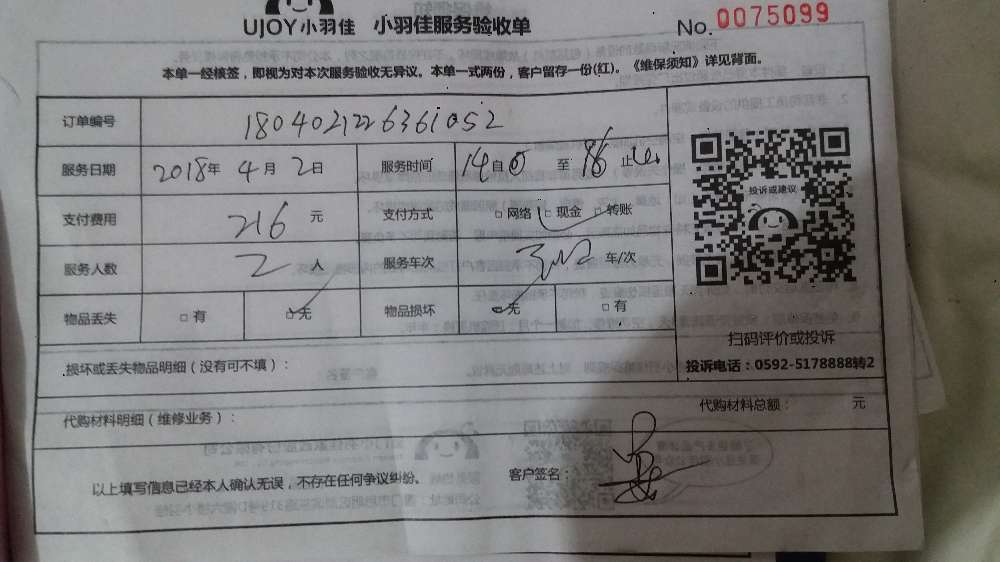 UJOY小羽佳 小羽佳服务验收单 No. 0075099
本单一经核签，即视为对本次服务验收无异议。本单一式两份，客户留存一份(红)。《维保须知》详见背面。
订单编号 1804021226361052
服务日期 2018年 4月 2日 服务时间 14自 至 止
支付费用 216 元 支付方式 □网络 □现金 □转账
服务人数 2 人 服务车次 车/次
物品丢失 □有 □无 物品损坏 □无 □有
投诉或建议
扫码评价或投诉
投诉电话：0592-5178888转2
损坏或丢失物品明细（没有可不填）：
代购材料明细（维修业务）： 代购材料总额： 元
以上填写信息已经本人确认无误，不存在任何争议纠纷。 客户签名：